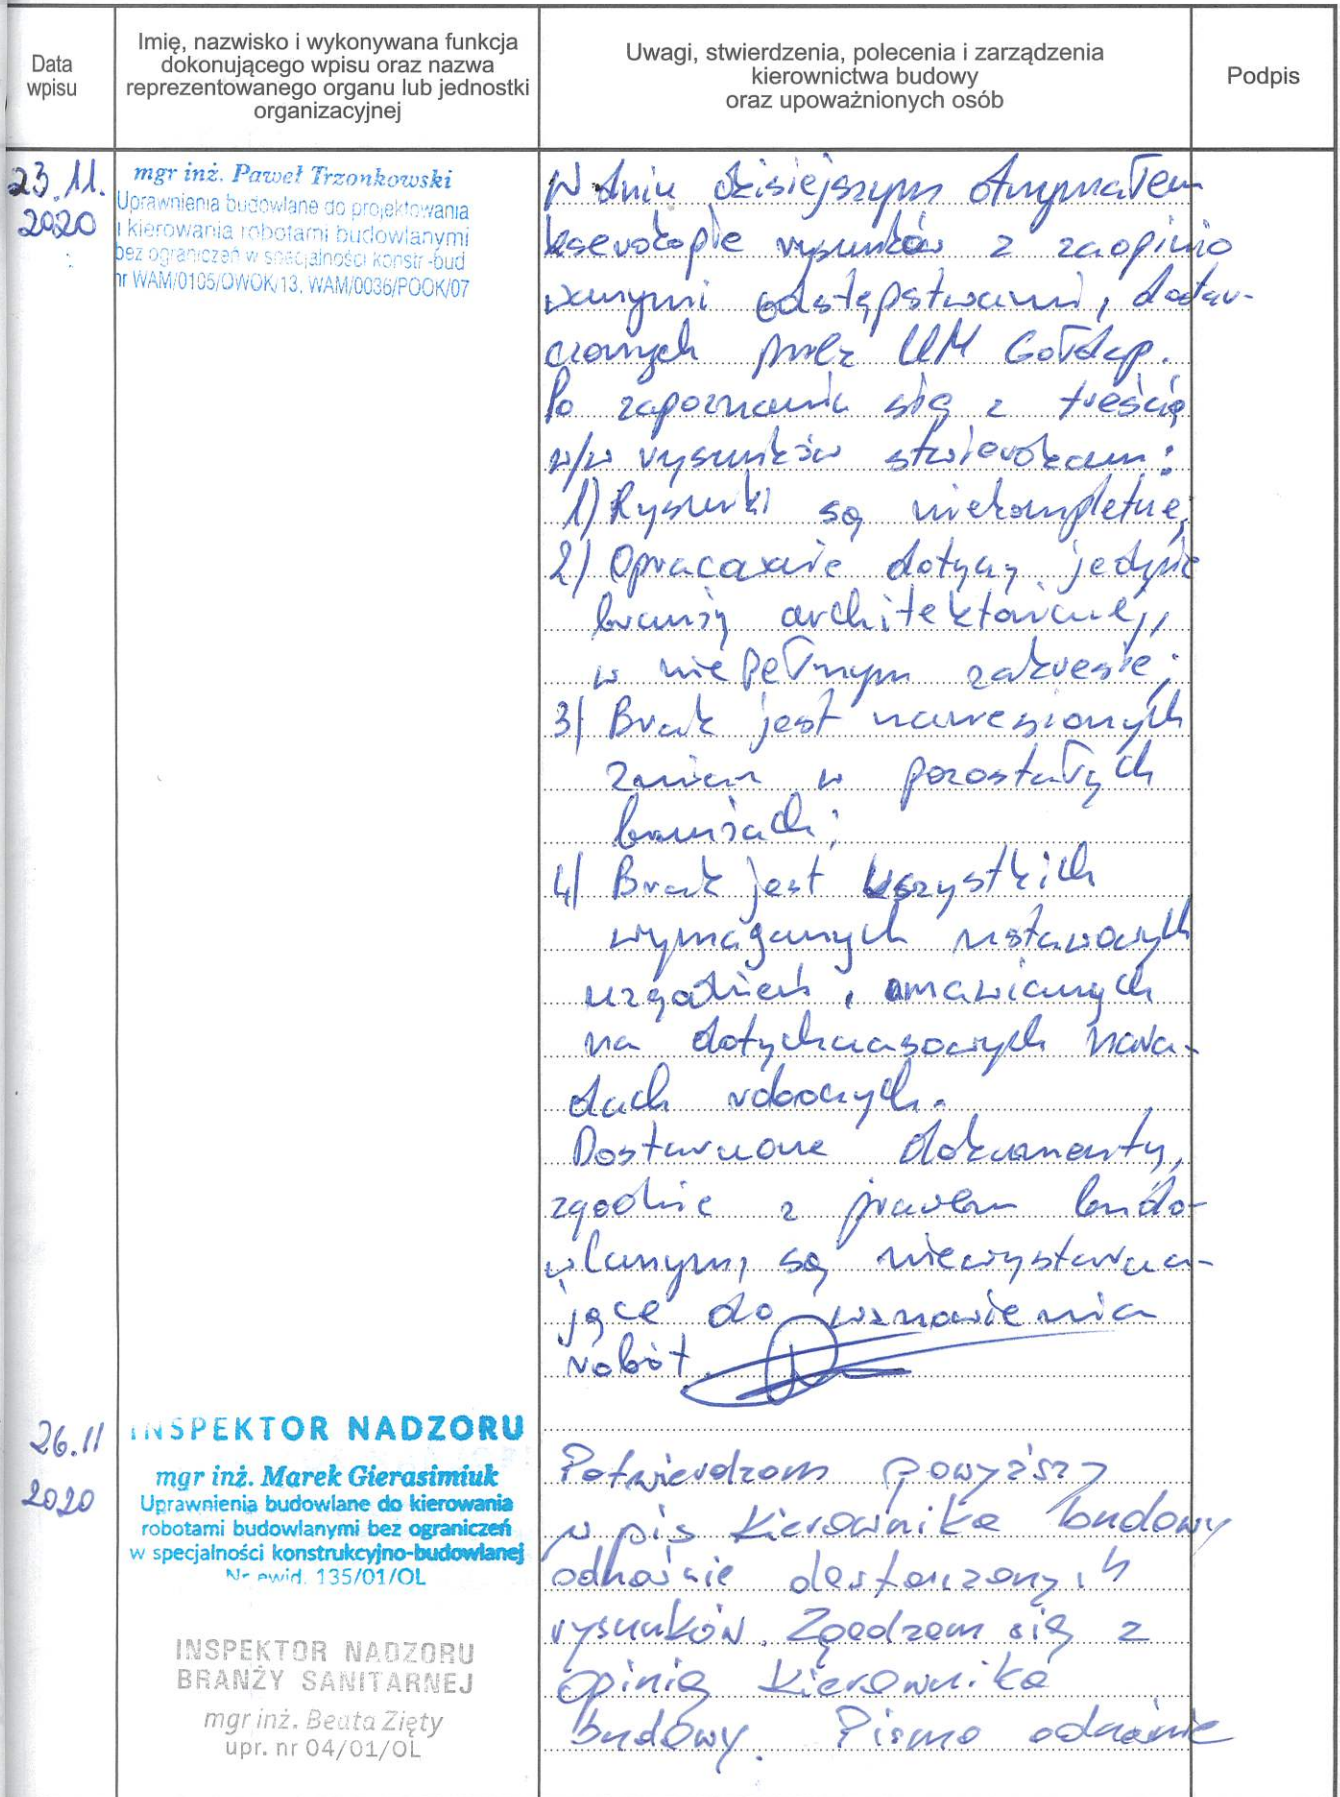 Data
wpisu
Imię, nazwisko i wykonywana funkcja
dokonującego wpisu oraz nazwa
reprezentowanego organu lub jednostki
organizacyjnej
Uwagi, stwierdzenia, polecenia i zarządzenia
kierownictwa budowy
oraz upoważnionych osób
Podpis
23.11.
2020
mgr inż. Paweł Trzonkowski
Uprawnienia budowlane do projektowania
i kierowania robotami budowlanymi
bez ograniczeń w specjalności konstr-bud
nr WAM/0105/OWOK/13, WAM/0036/POOK/07
W dniu dzisiejszym otrzymałem
kserokopie rysunków z zaopinio
wanymi odstępstwami, dostar-
czonych przez UM Gołdap.
Po zapoznaniu się z treścią
w/w rysunków stwierdzam:
1) Rysunki są niekompletne,
2) Opracowanie dotyczy jedynie
branży architektonicznej,
w niepełnym zakresie;
3) Brak jest naniesionych
zmian w pozostałych
branżach;
4) Brak jest wszystkich
wymaganych ustawowych
uzgodnień, omawianych
na dotychczasowych nara-
dach roboczych.
Dostarczone dokumenty,
zgodnie z prawem budo-
wlanym, są niewystarcza-
jące do wznowienia
robót.
26.11
2020
INSPEKTOR NADZORU
mgr inż. Marek Gierasimiuk
Uprawnienia budowlane do kierowania
robotami budowlanymi bez ograniczeń
w specjalności konstrukcyjno-budowlanej
Nr ewid. 135/01/OL
INSPEKTOR NADZORU
BRANŻY SANITARNEJ
mgr inż. Beata Zięty
upr. nr 04/01/OL
Potwierdzam powyższy
wpis Kierownika budowy
odnośnie dostarczonych
rysunków. Zgadzam się z
opinią Kierownika
budowy. Pismo odnośnie